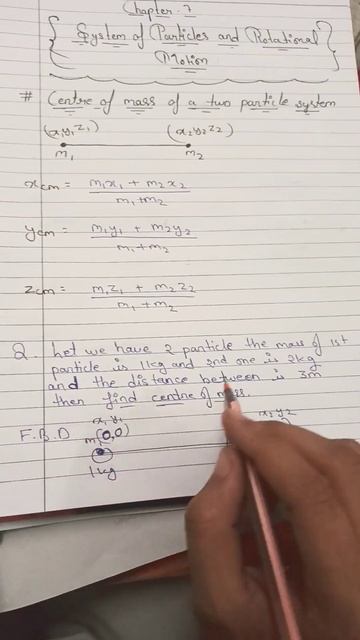 Chapter-7
System of Particles and Rotational
Motion
# Centre of mass of a two particle system
(x1y1z1) (x2y2z2)
m1 m2
xcm = m1x1 + m2x2 / m1+m2
ycm = m1y1 + m2y2 / m1+m2
zcm = m1z1 + m2z2 / m1+m2
Q. Let we have 2 particle the mass of 1st
particle is 1kg and 2nd one is 2kg
and the distance between is 3m
then find centre of mass.
x1 y1 x2 y2
F.B.D m1 (0,0)
1kg